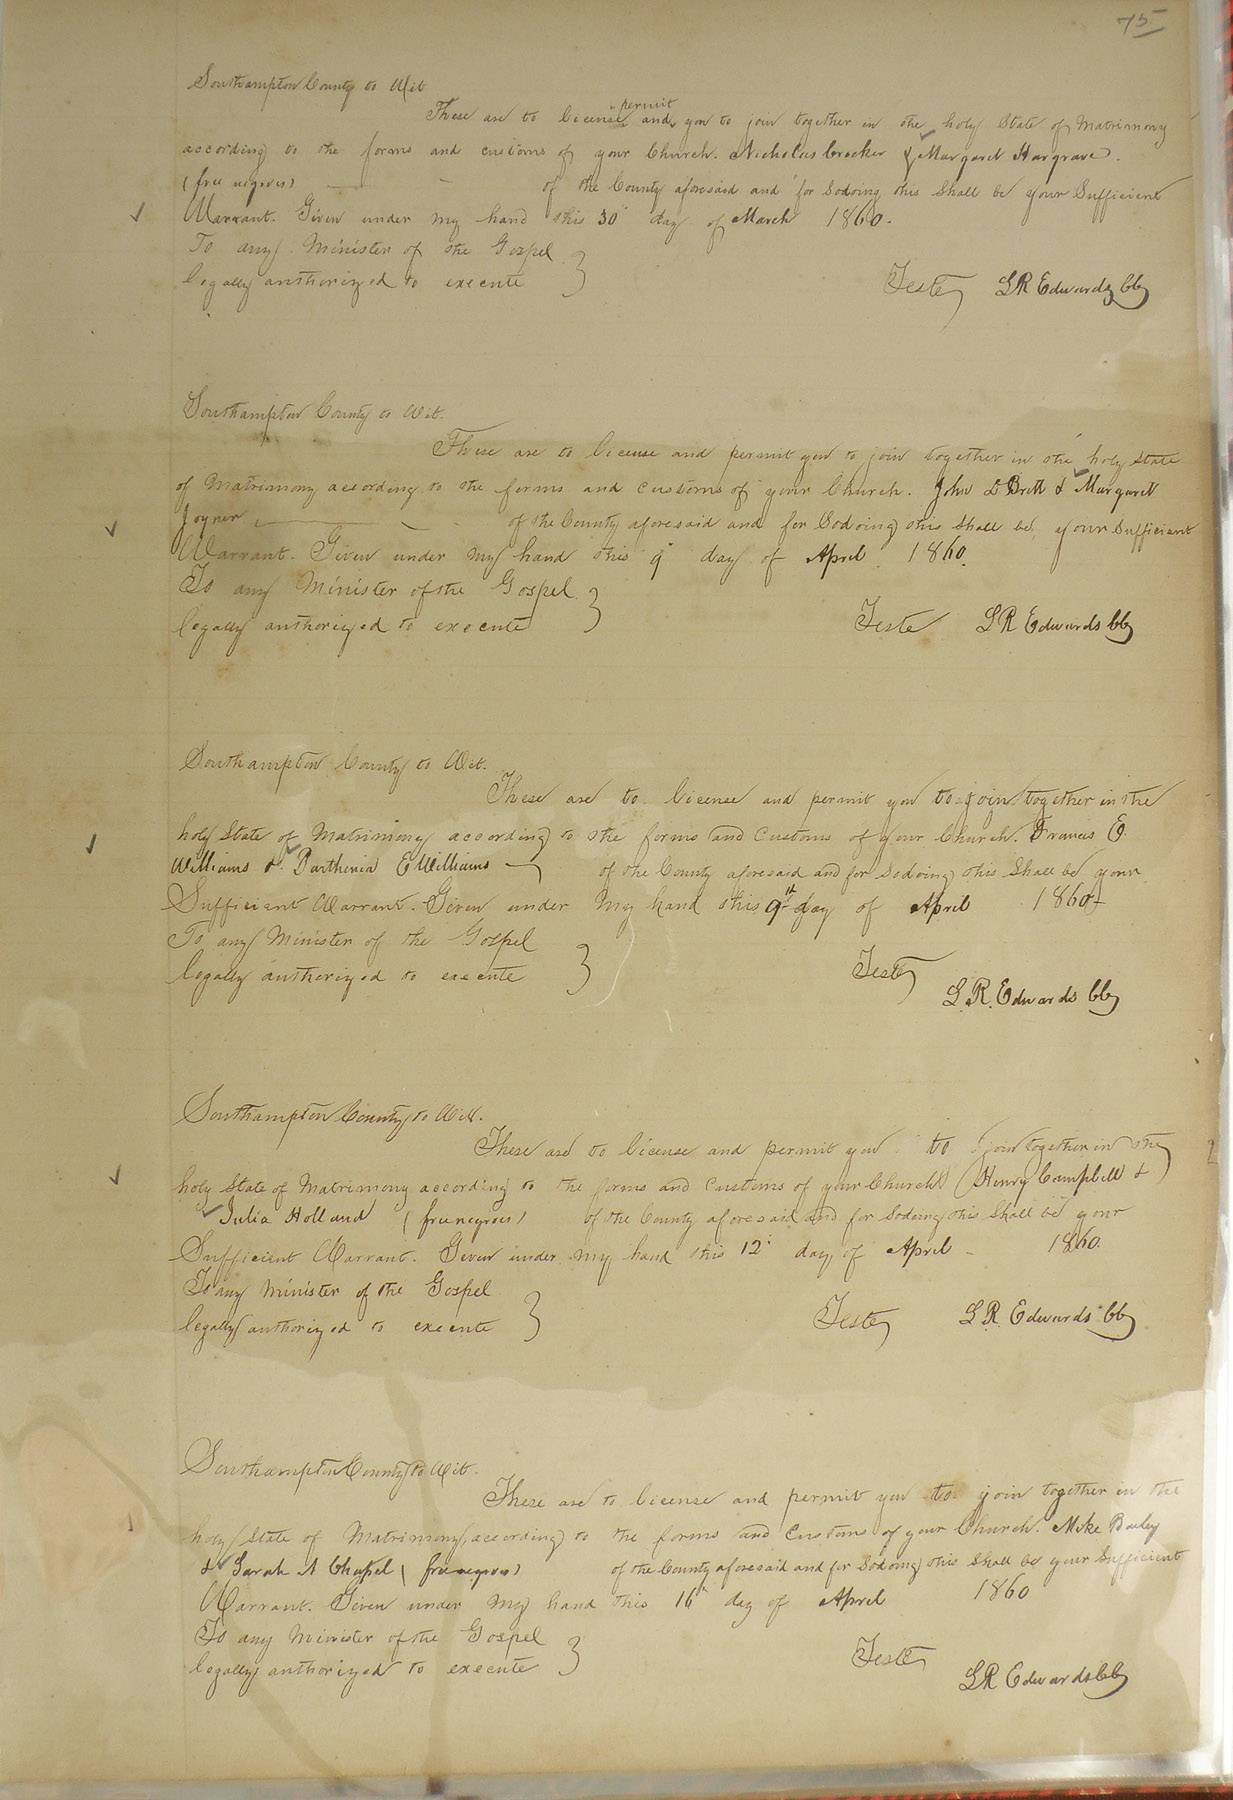 75
Southampton County to Wit
permit
These are to License and you to join together in the holy State of Matrimony
according to the forms and customs of your Church. Nicholas Crocker & Margaret Hargrave.
(free negroes) of the County aforesaid and for Sodoing this Shall be your Sufficient
Warrant. Given under my hand this 30 day of March 1860.
To any Minister of the Gospel
legally authorized to execute }
Teste L R Edwards CC
Southampton County to Wit.
These are to License and permit you to join together in the holy State
of Matrimony according to the forms and customs of your Church. John D Britt & Margaret
Joyner of the County aforesaid and for Sodoing this Shall be your Sufficient
Warrant. Given under my hand this 9 day of April 1860.
To any Minister of the Gospel
legally authorized to execute }
Teste L R Edwards CC
Southampton County to Wit.
These are to License and permit you to join together in the
holy State of Matrimony according to the forms and Customs of your Church. Francis E.
Williams & Parthenia E Williams of the County aforesaid and for Sodoing this Shall be your
Sufficient Warrant. Given under my hand this 9th day of April 1860
To any Minister of the Gospel
legally authorized to execute }
Teste
L. R. Edwards CC
Southampton County to Wit.
These are to License and permit you to join together in the
holy State of Matrimony according to the forms and Customs of your Church (Henry Campbell &
Julia Holland (free negroes) of the County aforesaid and for Sodoing this Shall be your
Sufficient Warrant. Given under my hand this 12 day of April 1860.
To any Minister of the Gospel
legally authorized to execute }
Teste L. R. Edwards CC
Southampton County to Wit.
These are to License and permit you to join together in the
holy State of Matrimony, according to the forms and Customs of your Church. Mike Bailey
& Sarah A Chapel (free negroes) of the County aforesaid and for Sodoing this Shall be your Sufficient
Warrant. Given under my hand this 16th day of April 1860
To any Minister of the Gospel
legally authorized to execute }
Teste
L R Edwards CC